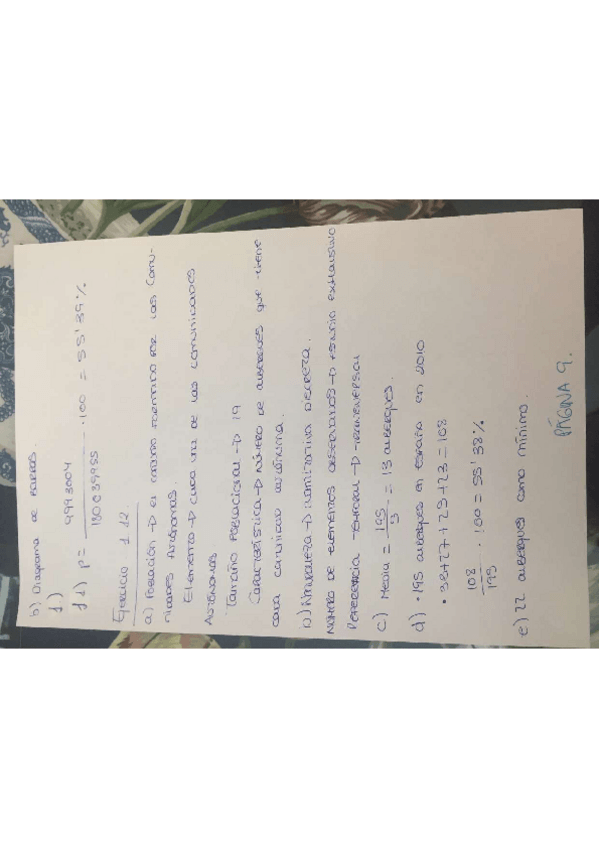 b) Diagrama de barras.
f.)
f 1) P = 9993004 / 180039955 · 100 = 55'39%
Ejercicio 1.12.
a) Población → el conjunto formado por las Comu-
nidades Autónomas.
Elemento → cada una de las comunidades
Autónomas
Tamaño poblacional → 19
Característica → número de albergues que tiene
cada comunidad autónoma.
b) Naturaleza → cuantitativa discreta.
Número de elementos observados → estudio exhaustivo
Referencia temporal → transversal
c) Media = 195 / = 13 albergues.
d) · 195 albergues en España en 2010
· 38+27+25+23 = 108
108 / 195 · 100 = 55'38%
e) 22 albergues como mínimo.
PÁGINA 9.